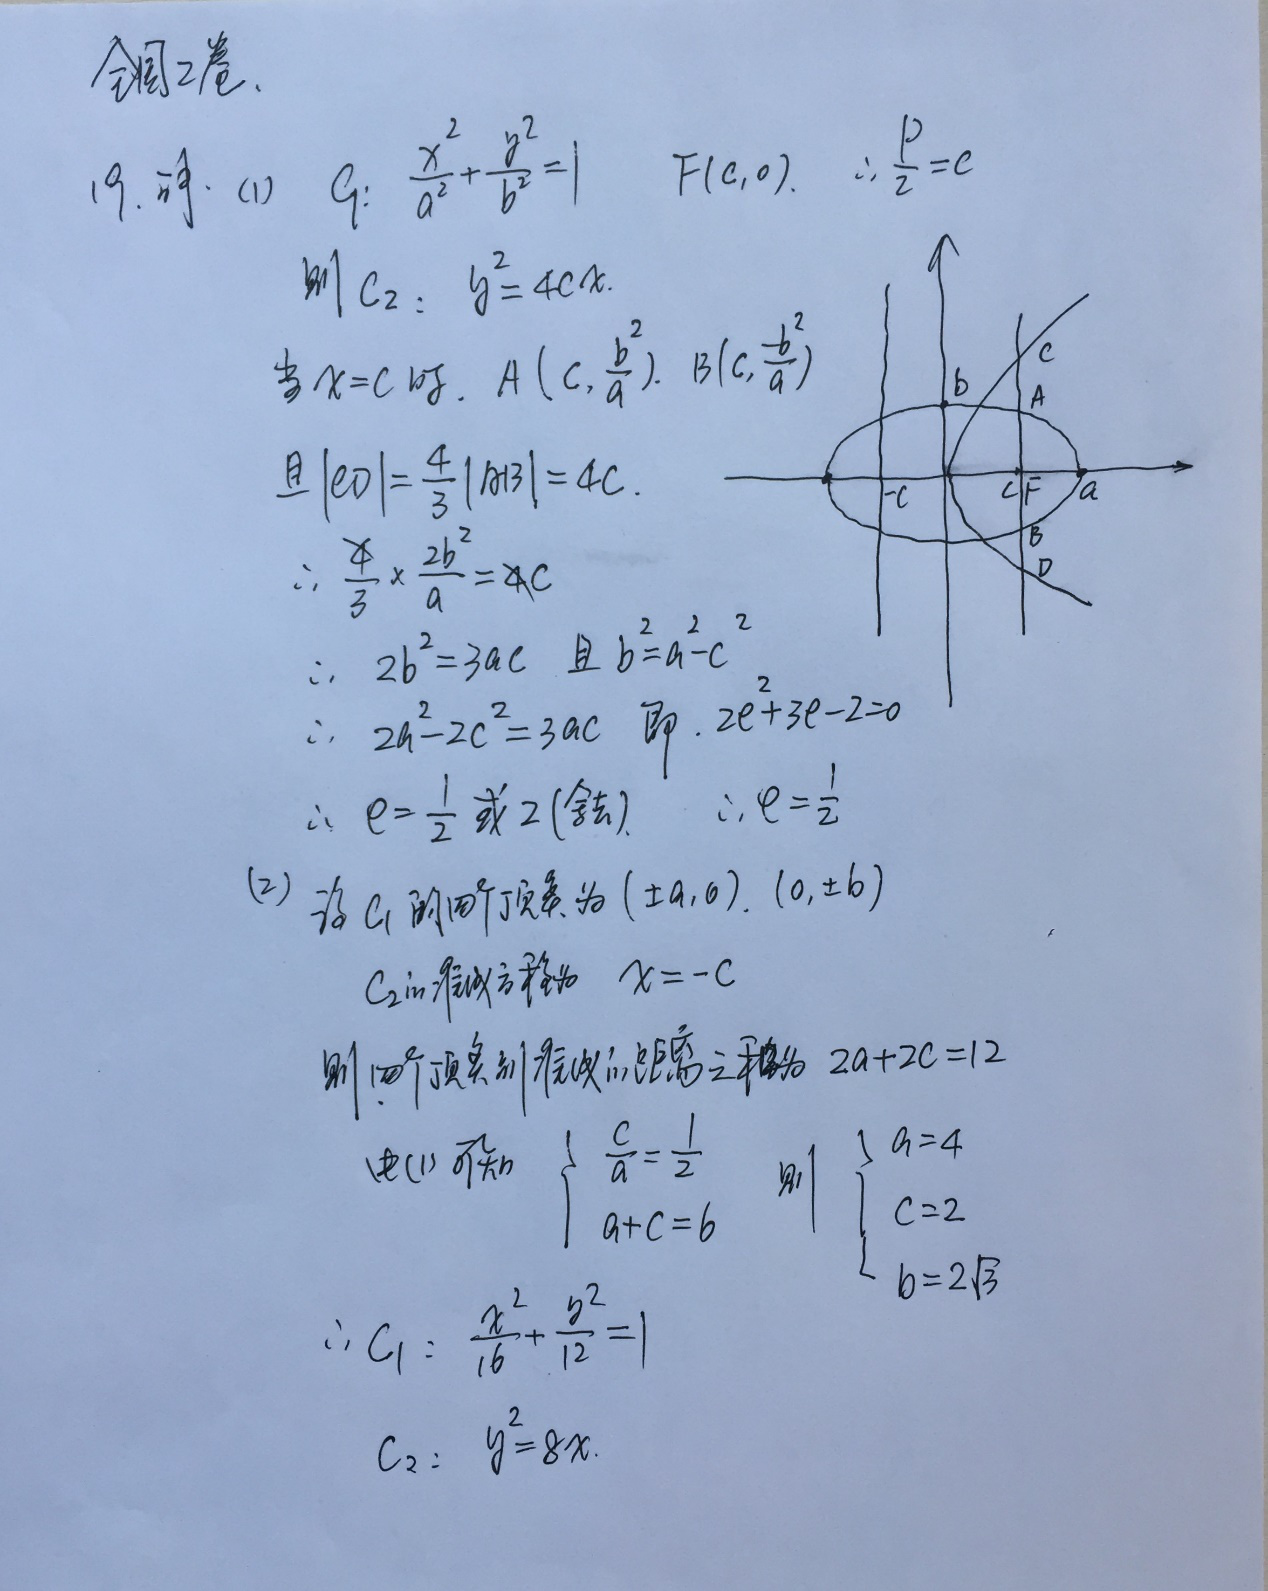 全国2卷.
19. 解. (1) C₁: x²/a² + y²/b² = 1 F(c,0). ∴ p/2 = c
则 C₂: y² = 4cx.
当 x=c 时. A(c, b²/a). B(c, -b²/a)
且 |CD| = 4/3 |AB| = 4c.
∴ 4/3 × 2b²/a = 4c
∴ 2b² = 3ac 且 b² = a² - c²
∴ 2a² - 2c² = 3ac 即. 2e² + 3e - 2 = 0
∴ e = 1/2 或 2 (舍去). ∴ e = 1/2
b
C
A
-c
c F
a
B
D
(2) 设 C₁ 的四个顶点为 (±a,0). (0,±b)
C₂的准线方程为 x = -c
则四个顶点到准线的距离之和为 2a+2c=12
由(1)可知 { c/a = 1/2 则 { a=4
a+c=6 c=2
b=2√3
∴ C₁: x²/16 + y²/12 = 1
C₂: y² = 8x.